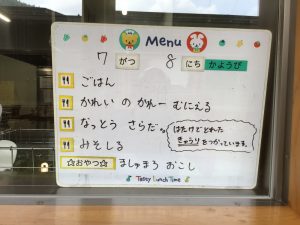 Menu
7 がつ 8 にち かようび
ごはん
かれい の かれー むにえる
なっとう さらだ
はたけでとれた
きゅうりをつかっています。
みそしる
☆おやつ☆ ましゅまろ おこし
Tasty Lunch Time